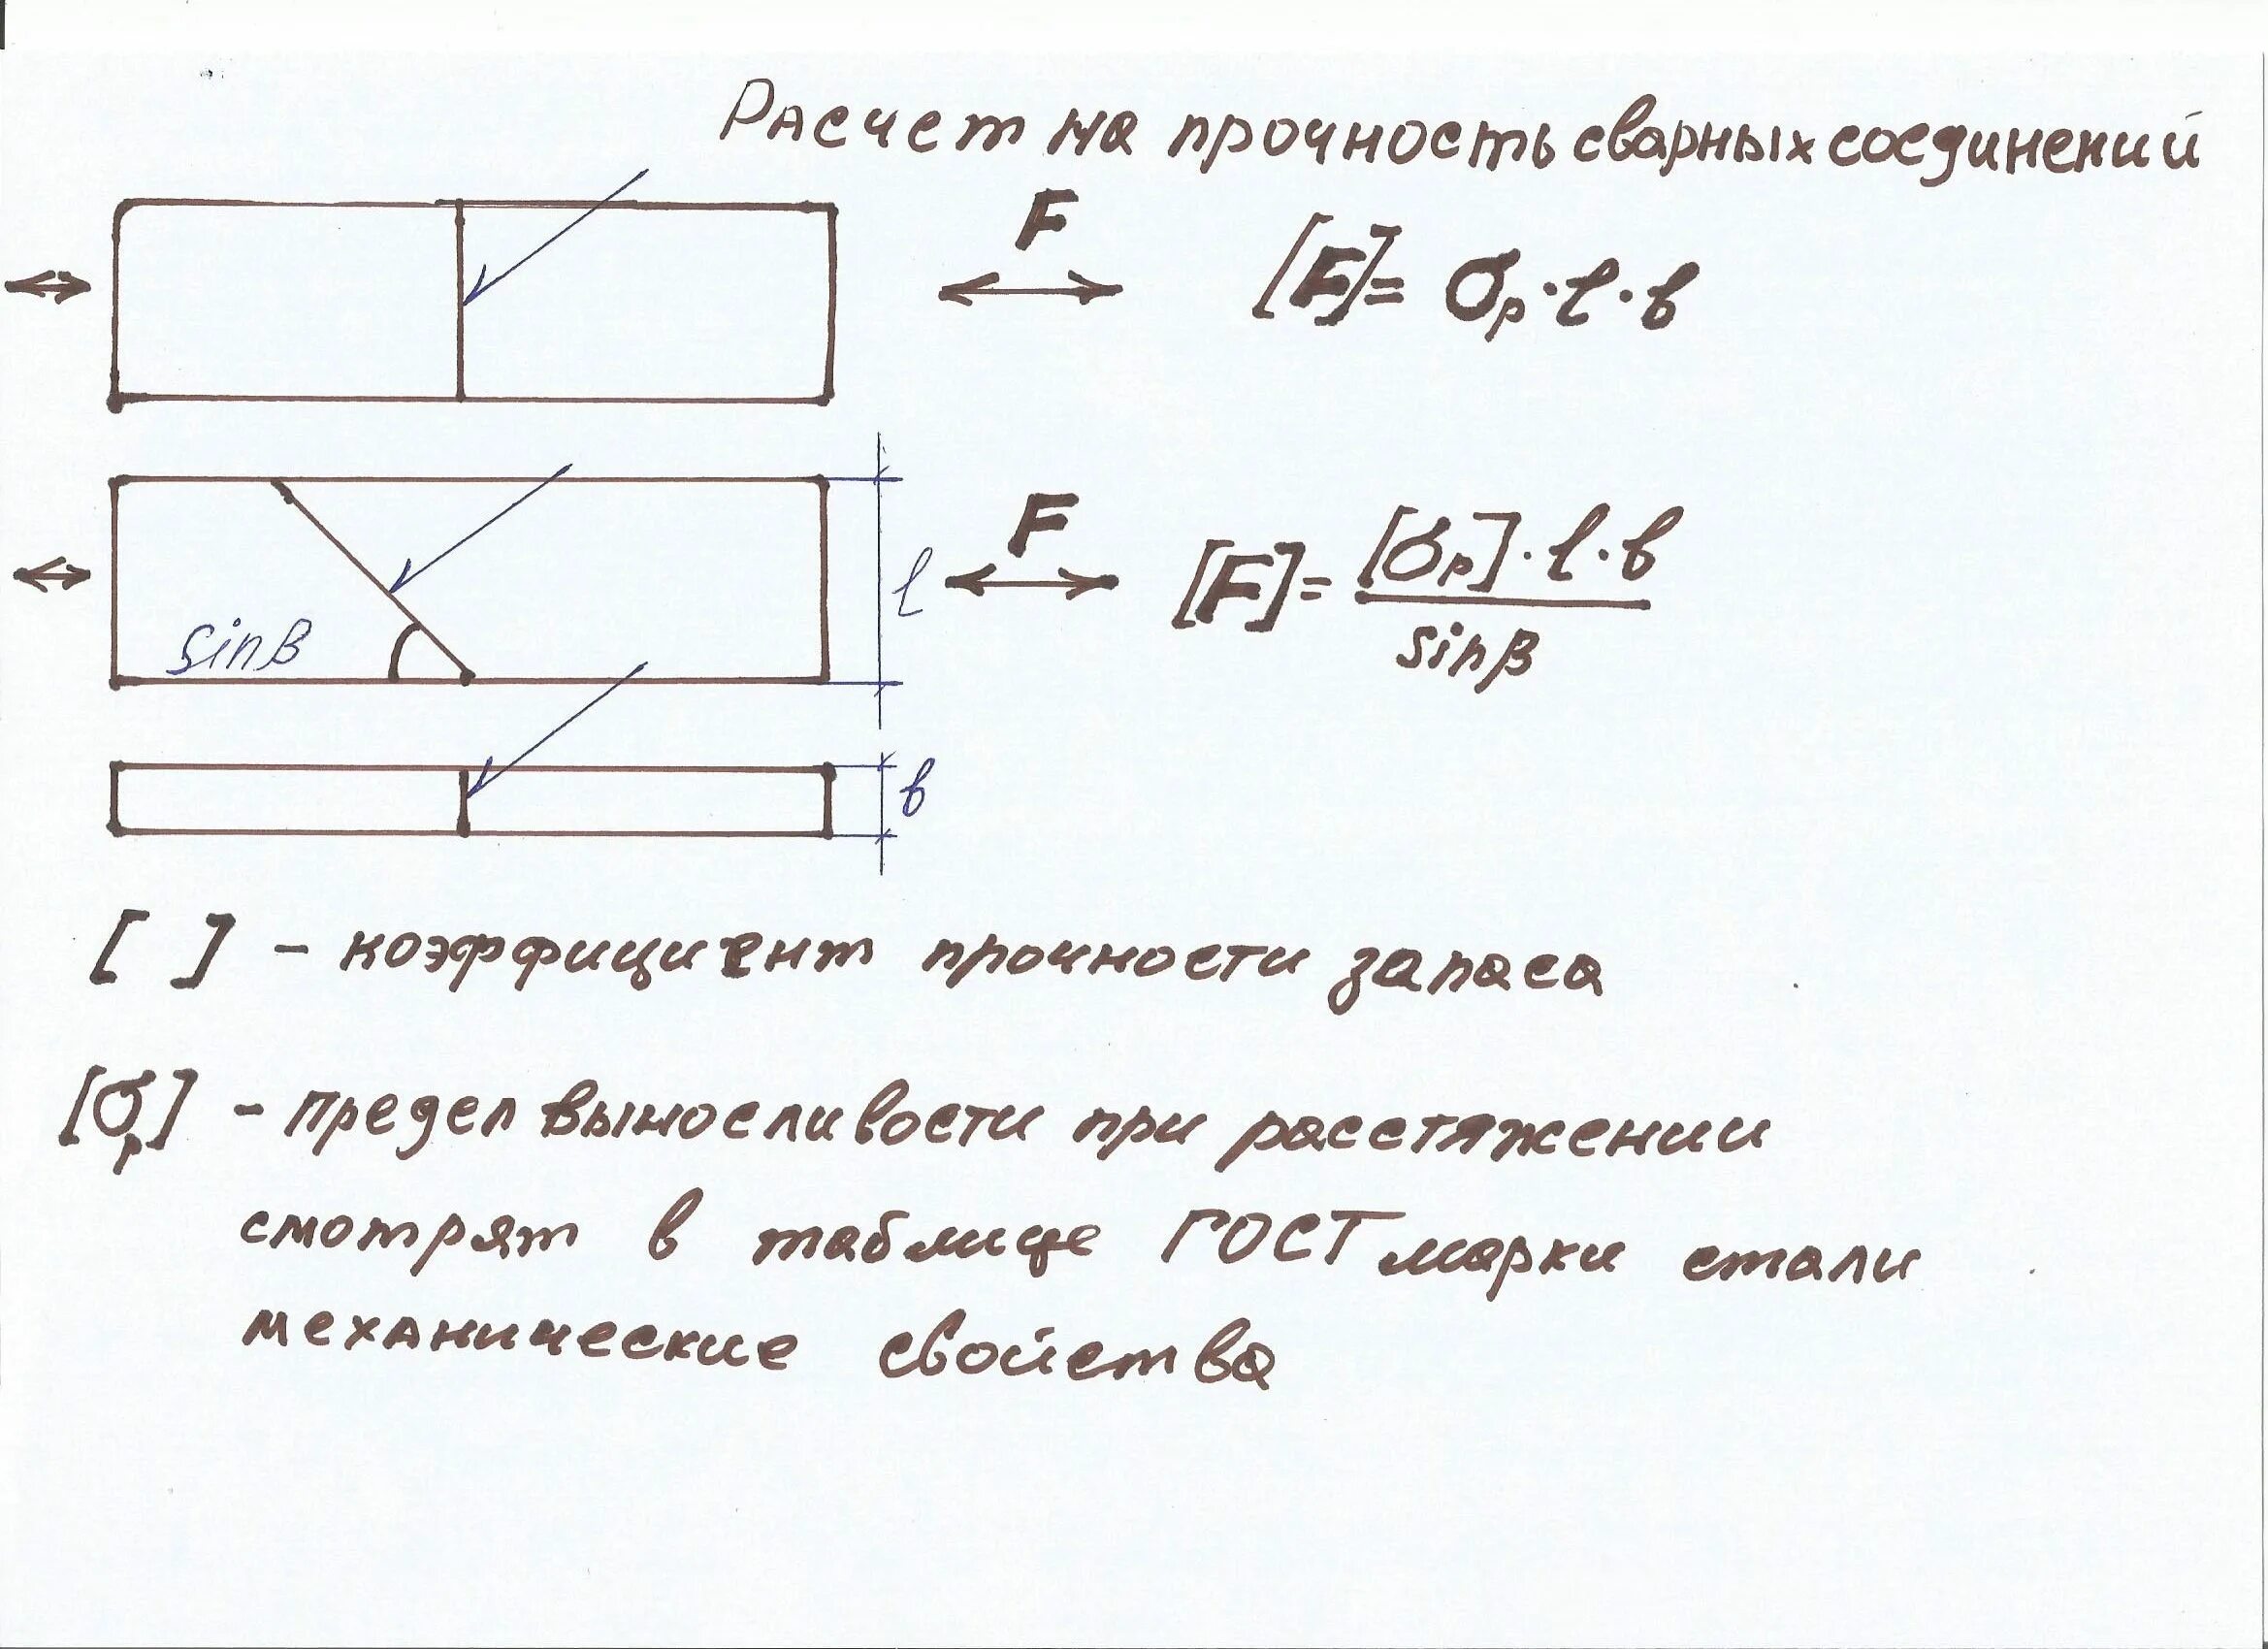 Расчет на прочность сварных соединений
F
[F]= σр·l·в
F
l
[F]= [σр]·l·в
sinβ
sinβ
в
[ ] - коэффициент прочности запаса
[σр] - предел выносливости при расстяжении
смотрят в таблице ГОСТ марки стали
механические свойства